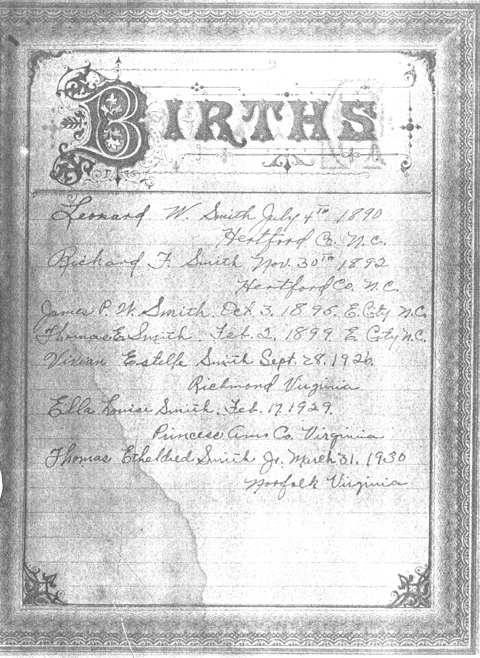 BIRTHS
Leonard W. Smith July 4th 1890
Hertford Co. N.C.
Richard F. Smith Nov. 30th 1892
Hertford Co. N.C.
James P. W. Smith. Oct. 3. 1895. E. City N.C.
Thomas E. Smith. Feb. 2. 1899. E City N.C.
Vivian Estelle Smith Sept. 28. 1926.
Richmond Virginia
Ella Louise Smith. Feb. 17. 1929.
Princess Ann Co. Virginia
Thomas Etheldred Smith Jr. March 31. 1930
Norfolk Virginia